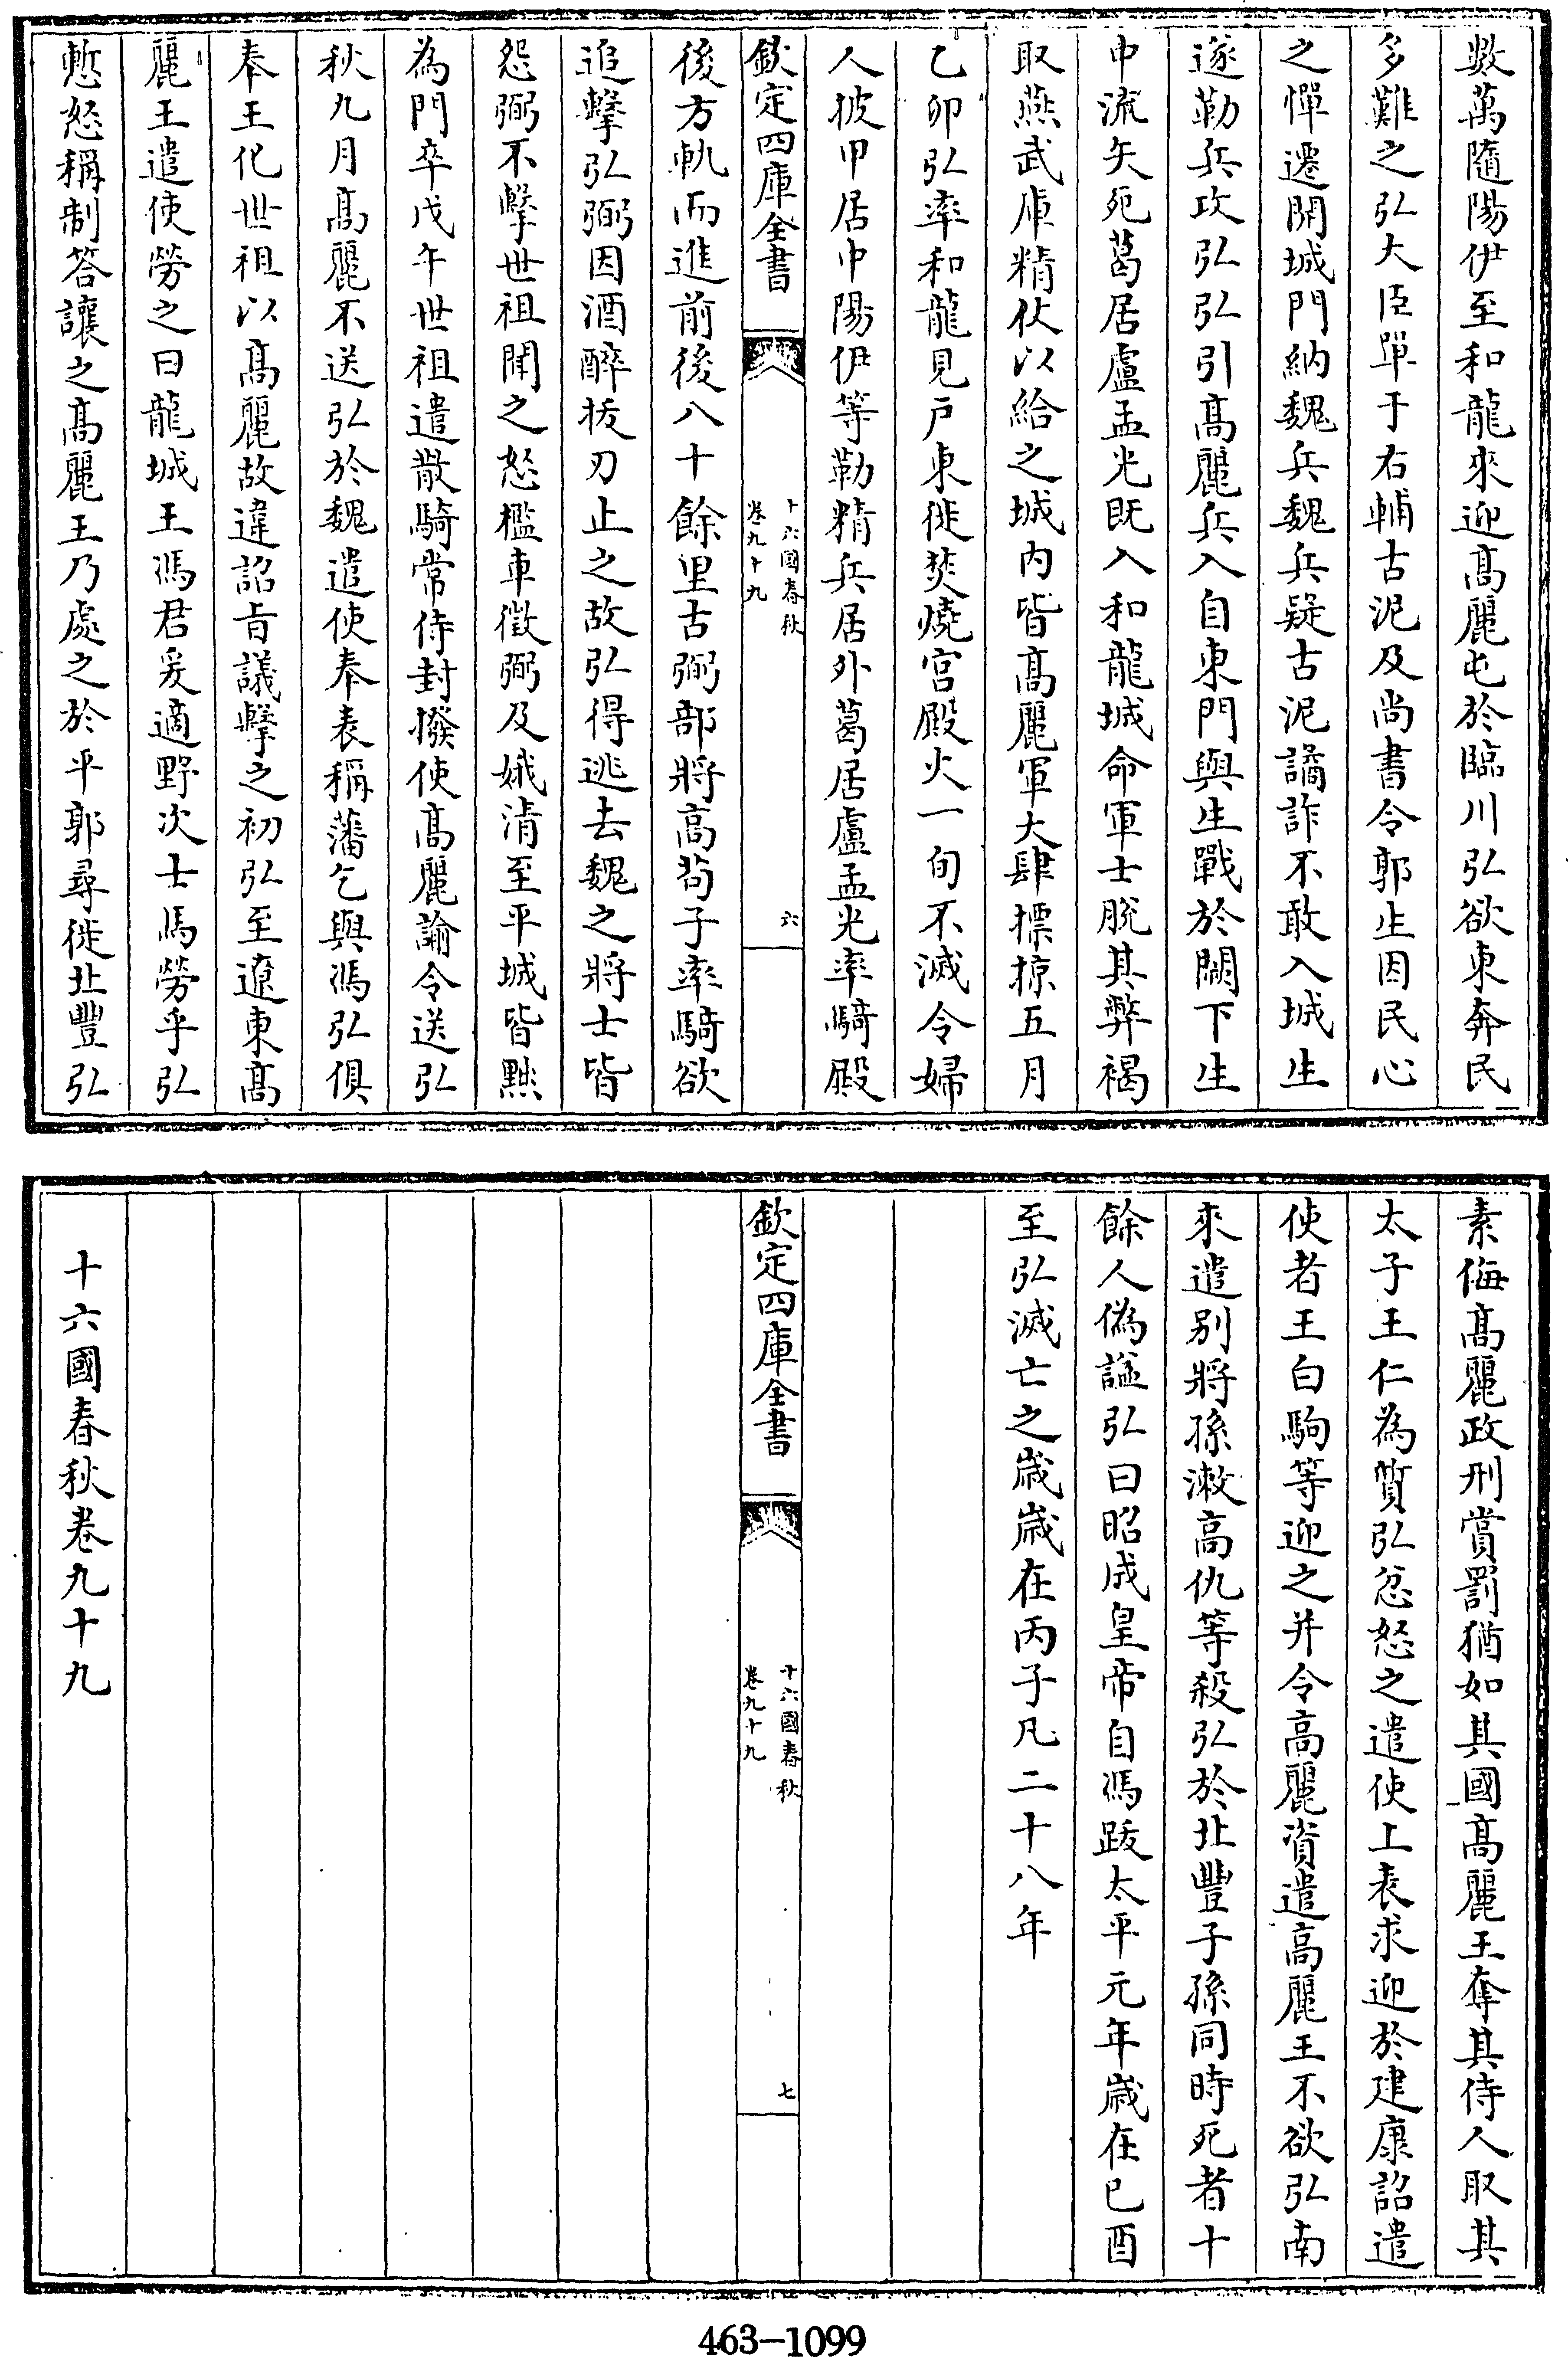 數萬隨陽伊至和龍來迎髙麗屯於臨川弘欲東奔民
多難之弘大臣單于右輔古泥及尚書令郭生因民心
之憚遷開城門納魏兵魏兵疑古泥譎詐不敢入城生
遂勒兵攻弘弘引髙麗兵入自東門與生戰於闕下生
中流矢死葛居盧孟光既入和龍城命軍士脫其弊褐
取燕武庫精仗以給之城内皆髙麗軍大肆摽掠五月
乙卯弘率和龍見戸東徙焚燒宫殿火一旬不滅令婦
人披甲居中陽伊等勒精兵居外葛居盧孟光率騎殿
欽定四庫全書
十六國春秋
卷九十九
六
後方軌而進前後八十餘里古弼部將高茍子率騎欲
追擊弘弼因酒醉拔刃止之故弘得逃去魏之將士皆
怨弼不擊世祖聞之怒檻車徵弼及娥清至平城皆黜
為門卒戊午世祖遣散騎常侍封撥使髙麗諭令送弘
秋九月髙麗不送弘於魏遣使奉表稱藩乞與馮弘俱
奉王化世祖以髙麗故違詔旨議擊之初弘至遼東髙
麗王遣使勞之曰龍城王馮君爰適野次士馬勞乎弘
慙怒稱制答讓之髙麗王乃處之於平郭尋徙北豐弘
素侮髙麗政刑賞罰猶如其國髙麗王奪其侍人取其
太子王仁為質弘忿怒之遣使上表求迎於建康詔遣
使者王白駒等迎之并令高麗資遣高麗王不欲弘南
來遣别將孫漱高仇等殺弘於北豐子孫同時死者十
餘人偽謚弘曰昭成皇帝自馮跋太平元年歲在已酉
至弘滅亡之歲歲在丙子凡二十八年
欽定四庫全書
十六國春秋
卷九十九
七
十六國春秋卷九十九
463-1099